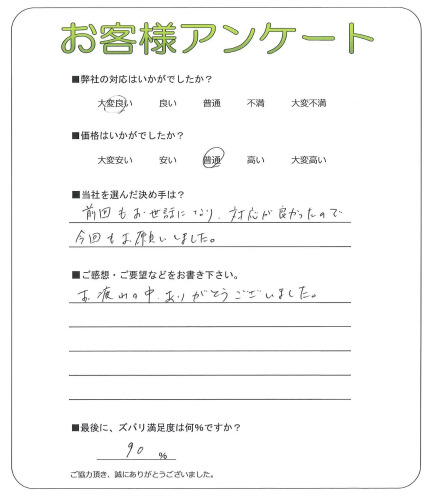 お客様アンケート
■弊社の対応はいかがでしたか？
大変良い 良い 普通 不満 大変不満
■価格はいかがでしたか？
大変安い 安い 普通 高い 大変高い
■当社を選んだ決め手は？
前回もお世話になり、対応が良かったので
今回もお願いしました。
■ご感想・ご要望などをお書き下さい。
お疲れの中、ありがとうございました。
■最後に、ズバリ満足度は何％ですか？
90 ％
ご協力頂き、誠にありがとうございました。